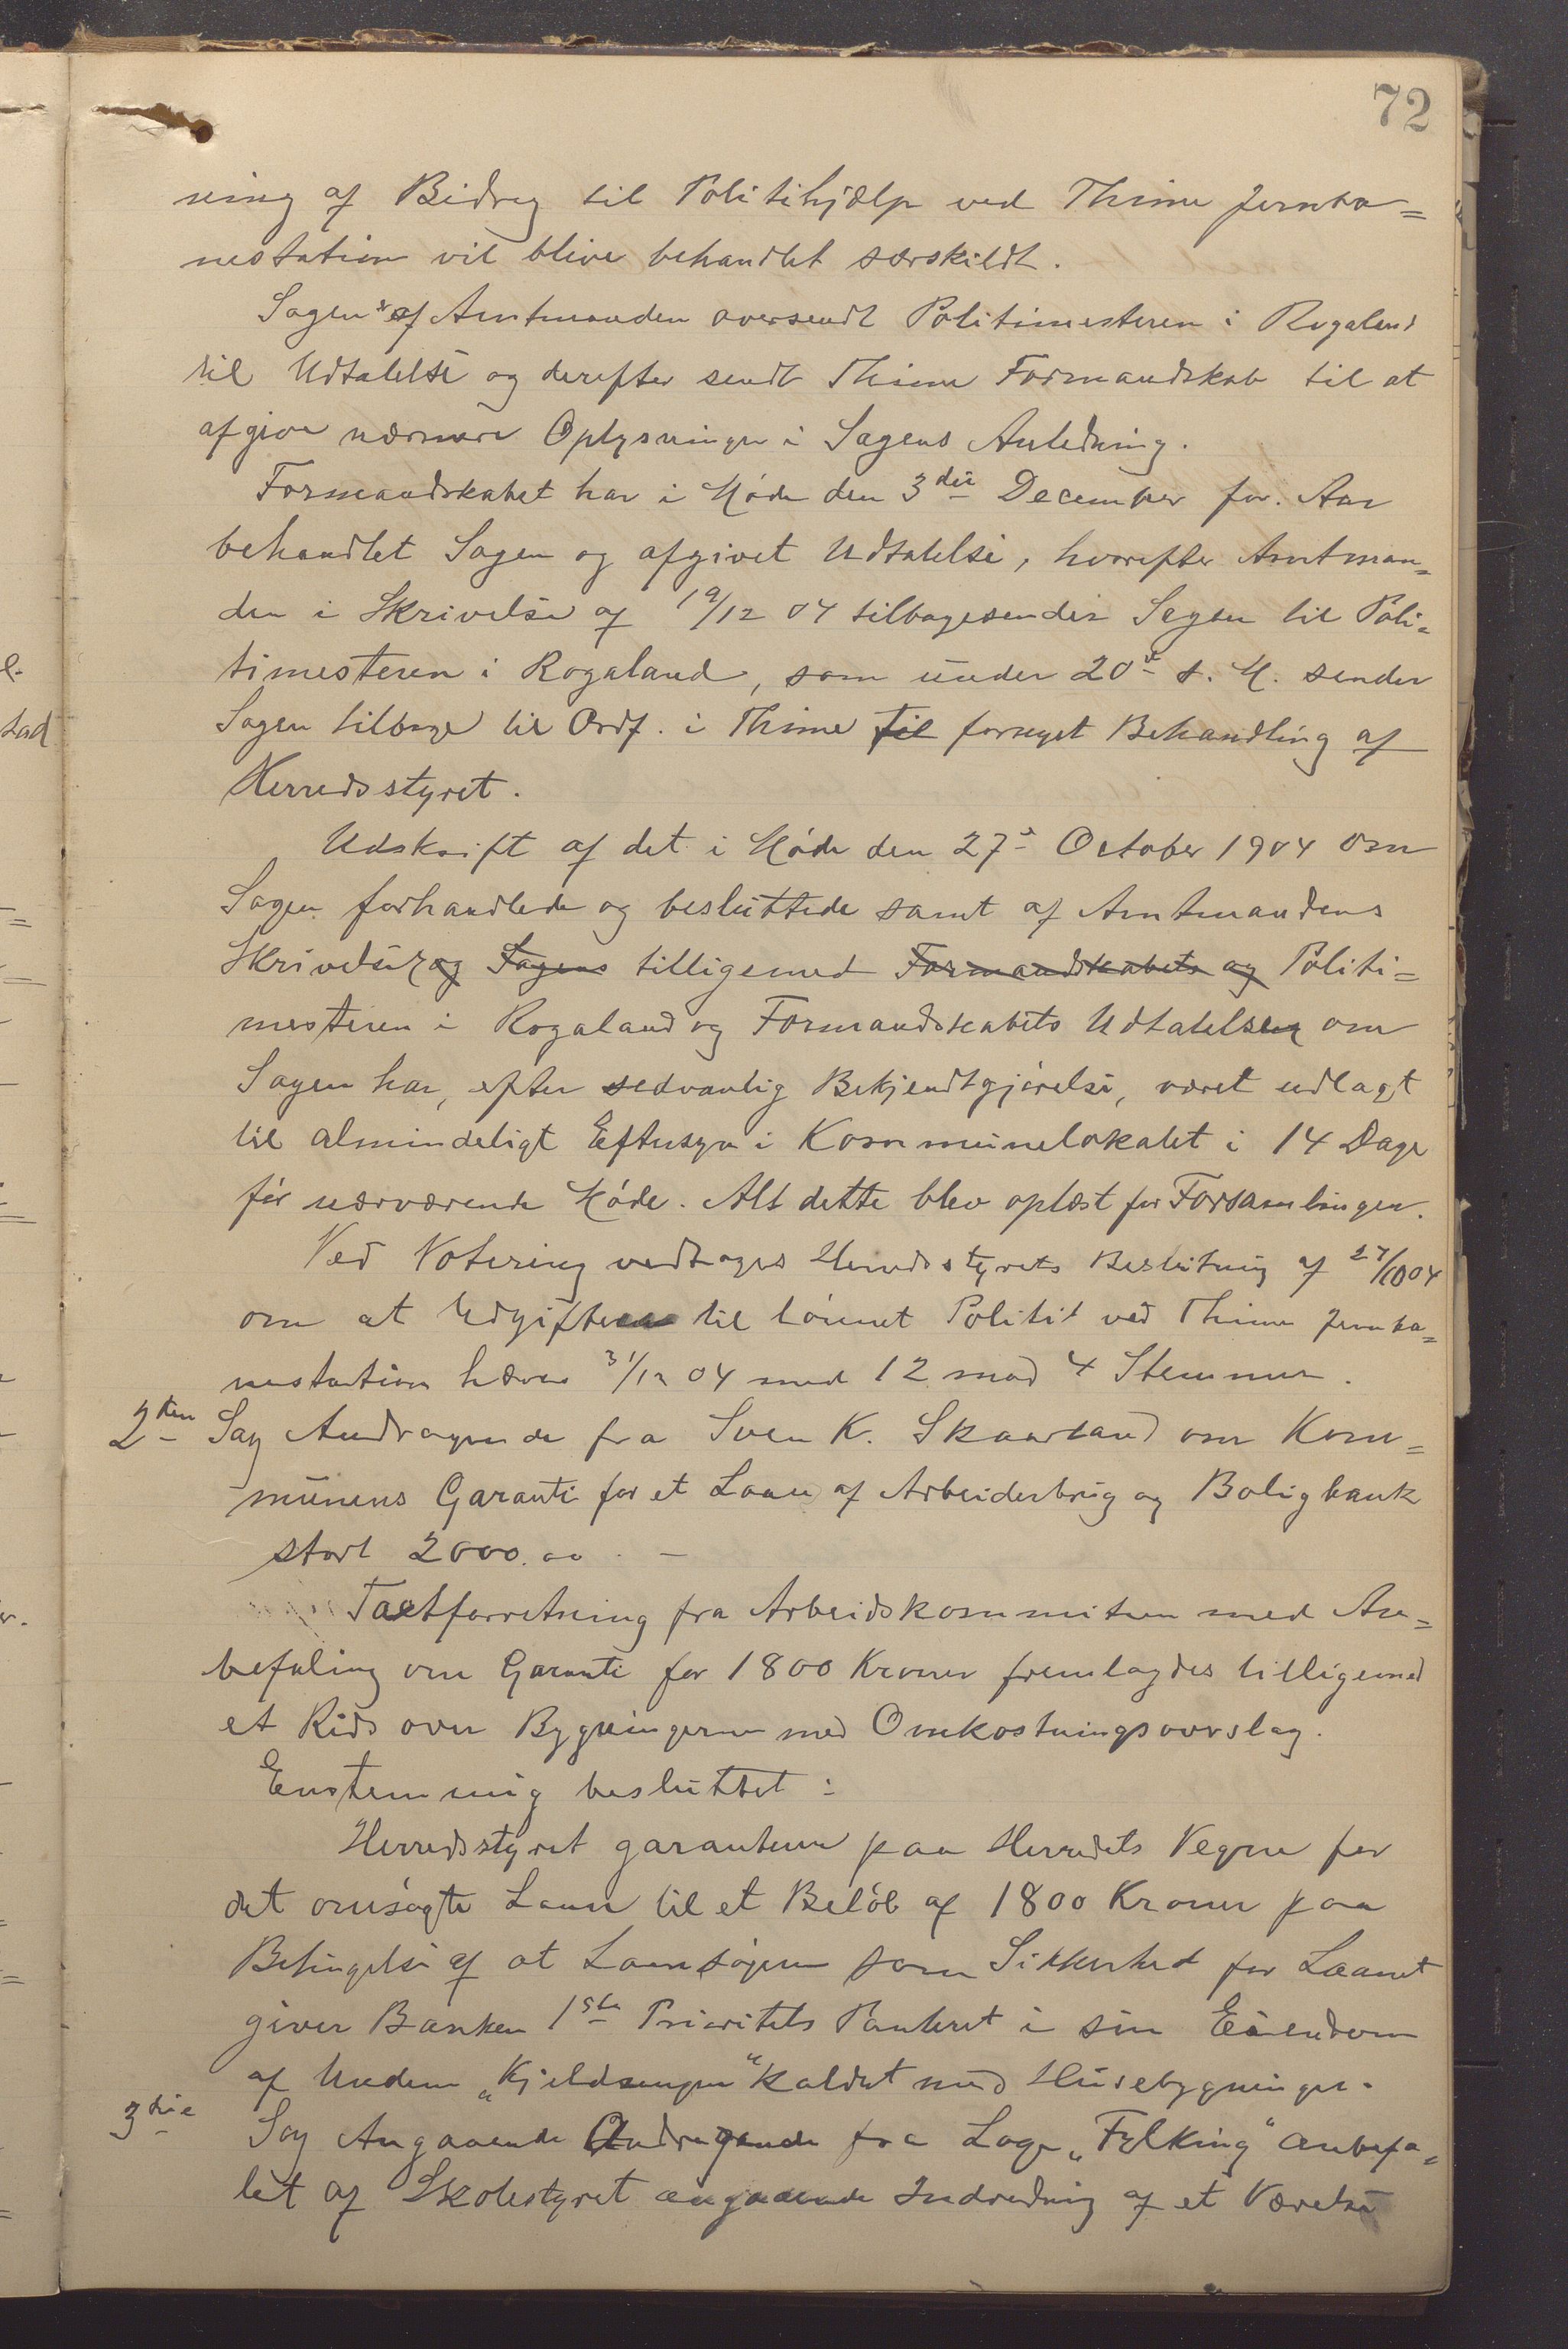 72
ning af Bidrag til Politihjælp ved Thime Jernba=
nestation vil blive behandlet særskildt.
Sagen er af Amtmanden oversendt Politimesteren i Rogaland
til Udtalelse og derefter sendt Thime Formandskab til at
afgive nærmere Oplysninger i Sagens Anledning.
Formandskabet har i Møde den 3die December for. Aar
behandlet Sagen og afgivet Udtalelse, hvorefter Amtman=
den i Skrivelse af 19/12 04 tilbagesender Sagen til Poli=
timesteren i Rogaland, som under 20de s. M. sender
Sagen tilbage til Ordf. i Thime til fornyet Behandling af
Herredsstyret.
Udskrift af det i Møde den 27de October 1904 om
Sagen forhandlede og besluttede samt af Amtmandens
Skrivelser og Sagens tilligemed Formandskabets og Politi=
mesteren i Rogaland og Formandskabets Udtalelser om
Sagen har, efter sedvanlig Bekjendtgjørelse, været udlagt
til almindeligt Eftersyn i Kommunelokalet i 14 Dage
før nærværende Møde. Alt dette blev oplæst for Forsamlingen.
Ved Votering vedtages Herredsstyrets Beslutning af 27/10 04
om at Udgiften til lønnet Politi ved Thime Jernba=
nestation hæves 31/12 04 med 12 mod 4 Stemmer.
2den Sag Andragende fra Sven K. Skaarland om Kom=
munens Garanti for et Laan af Arbeiderbrug og Boligbank
stort 2000.00. —
Taxtforretning fra Arbeidskommiteen med An=
befaling om Garanti for 1800 Kroner fremlagdes tilligemed
et Rids over Bygningerne med Omkostningsoverslag.
Enstemmig besluttet:
Herredsstyret garanterer paa Herredets Vegne for
det omsøgte Laan til et Beløb af 1800 Kroner paa
Betingelse af at Laansøgeren som Sikkerhed for Laanet
giver Banken 1ste Prioritets Panteret i sin Eiendom
af Undem „Kjeldsengen“ kaldet med Husebygninger.
3die Sag Angaaende Andragende fra Loge „Fylking“ anbefa=
let af Skolestyret angaaende Indredning af et Værelse